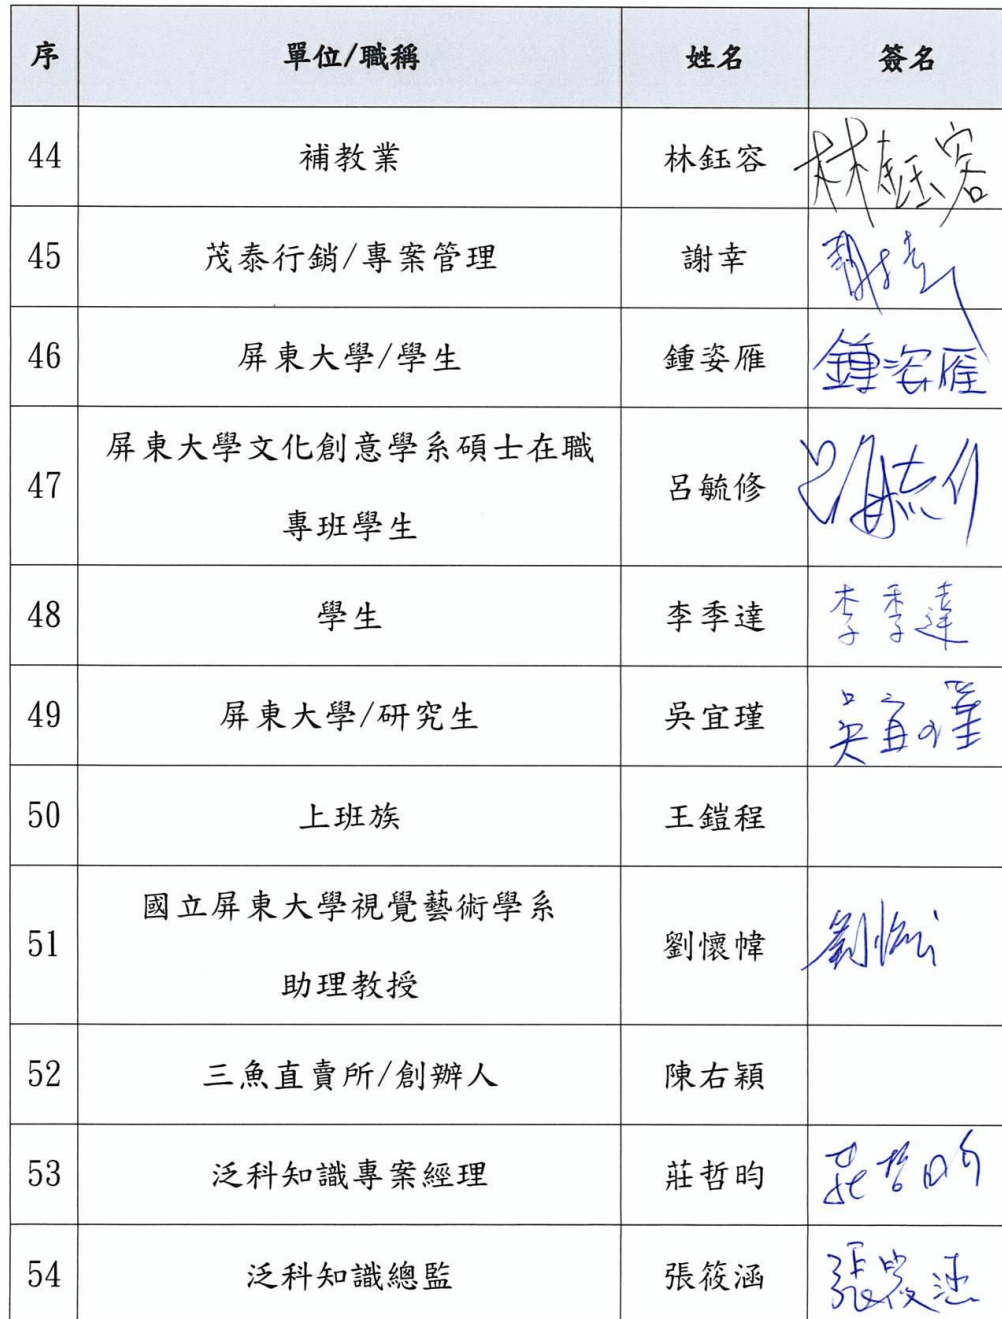 序 單位/職稱 姓名 簽名
44 補教業 林鈺容 林鈺容
45 茂泰行銷/專案管理 謝幸
46 屏東大學/學生 鍾姿雁 鍾姿雁
屏東大學文化創意學系碩士在職
47 呂毓修 呂毓修
專班學生
48 學生 李季達 李季達
49 屏東大學/研究生 吳宜瑾 吳宜瑾
50 上班族 王鎧程
國立屏東大學視覺藝術學系
51 劉懷幃
助理教授
52 三魚直賣所/創辦人 陳右穎
53 泛科知識專案經理 莊哲昀 莊哲昀
54 泛科知識總監 張筱涵 張筱涵